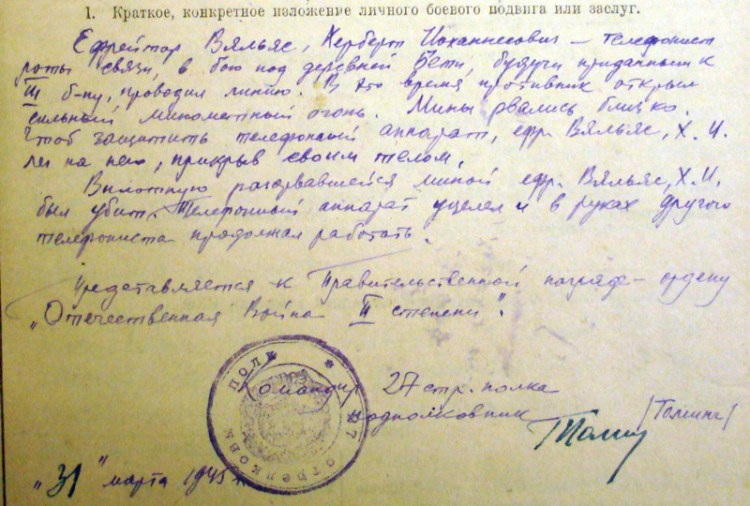 1. Краткое, конкретное изложение личного боевого подвига или заслуг.
Ефрейтор Вяльяс, Херберт Иоханнесович – телефонист
роты связи, в бою под деревней Бети, будучи приданным к
III б-ну, проводил линию. В это время противник открыл
сильный минометный огонь. Мины рвались близко.
Чтоб защитить телефонный аппарат, ефр. Вяльяс, Х. И.
лег на него, прикрыв своим телом.
Вплотную разорвавшейся миной ефр. Вяльяс, Х.И.
был убит. Телефонный аппарат уцелел и в руках другого
телефониста продолжал работать.
Представляется к Правительственной награде – ордену
„Отечественная Война II степени".
Командир 27 стр. полка
подполковник
"31" марта 1945 г.
27 стрелковый полк